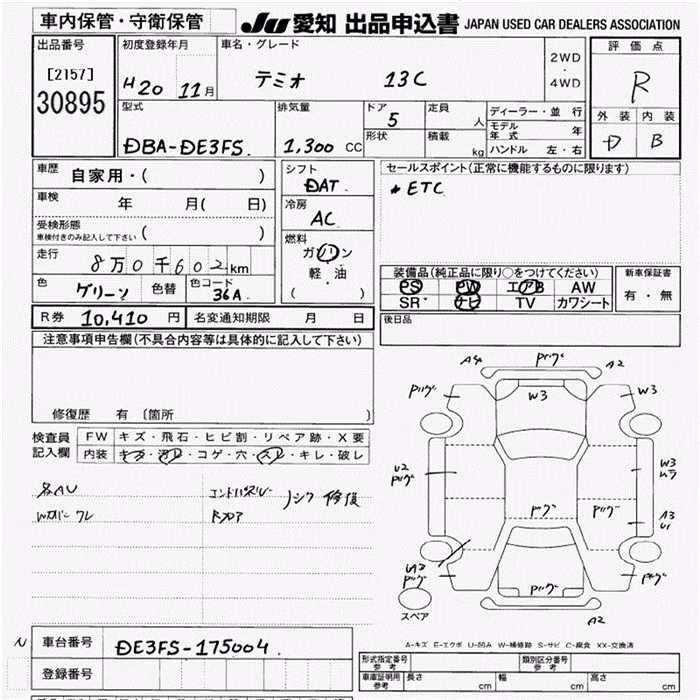 車内保管・守衛保管
JU 愛知 出品申込書 JAPAN USED CAR DEALERS ASSOCIATION
出品番号
[2157]
30895
初度登録年月
H20 11月
車名・グレード
デミオ 13C
2WD
・
4WD
評価点
R
外装 内装
D B
型式
DBA-DE3FS.
排気量
1,300 CC
ドア
5
定員
人
形状
積載
kg
ディーラー・並行
モデル年式 年
ハンドル 左・右
車歴
自家用・( )
車検
年 月( 日)
受検形態
車検付きのみ記入して下さい ( )
走行
8万0千602km
色
グリーン
色替
色コード
36A.
シフト
DAT.
冷房
AC
燃料
ガソリン
軽・油
( )
セールスポイント(正常に機能するものに限ります)
* ETC
装備品(純正品に限り○をつけてください)
PS PW エアB AW
SR ナビ TV カワシート
新車保証書
有・無
R券 10,410 円 名変通知期限 月 日
後日品
注意事項申告欄(不具合内容等は具体的に記入して下さい)
修復歴 有〔箇所 〕
検査員
記入欄
FW キズ・飛石・ヒビ割・リペア跡・X要
内装 キズ・汚レ・コゲ・穴・スレ・キレ・破レ
各AU
エンドパネル
Rフロア
修復
A4 Pリング A2
Pリング W3 W3
U2
W3
ムラ
A3
A2
スペア
A-キズ E-エクボ U-凹み W-補修跡 S-サビ C-腐食 XX-交換済
N 車台番号 DE3FS-175004.
登録番号
形式指定番号
参考
類別区分番号
参考
車庫証明用
参考
長さ cm 幅 cm 高さ cm